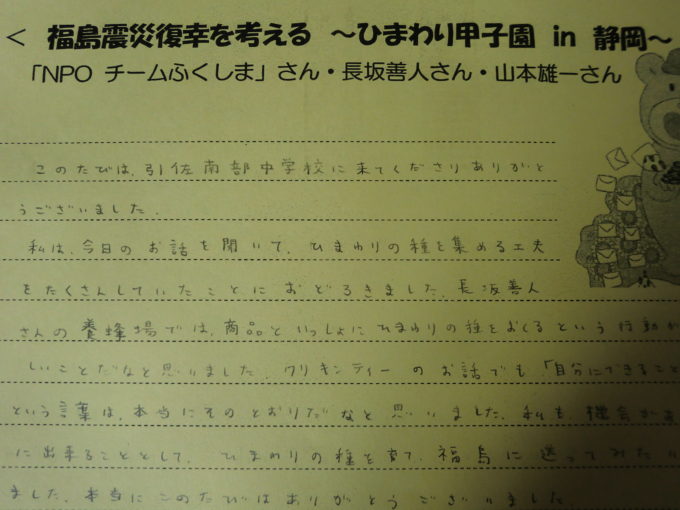 ＜ 福島震災復幸を考える ～ひまわり甲子園 in 静岡～
「NPO チームふくしま」さん・長坂善人さん・山本雄一さん
このたびは、引佐南部中学校に来てくださりありがと
うございました。
私は、今日のお話を聞いて、ひまわりの種を集める工夫
をたくさんしていたことにおどろきました。長坂善人
さんの養蜂場では、商品といっしょにひまわりの種をおくるという行動が
しいことだなと思いました。クリキンディーのお話でも、「自分にできること
という言葉は、本当にそのとおりだなと思いました。私も、機会があ
に出来ることとして、ひまわりの種を育て、福島に送ってみたい
ました。本当にこのたびはありがとうございました。